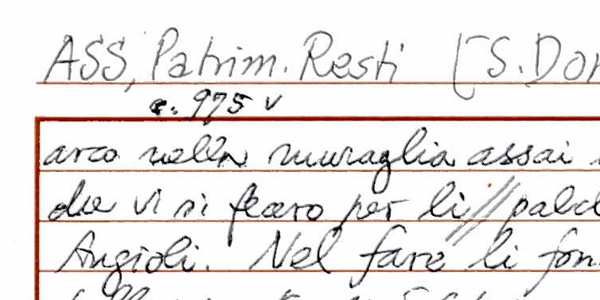 ASS, Patrim. Resti [S. Don
c. 975 v
arco nella muraglia assai
che vi si fecero per li // palch
Angioli. Nel fare li fon